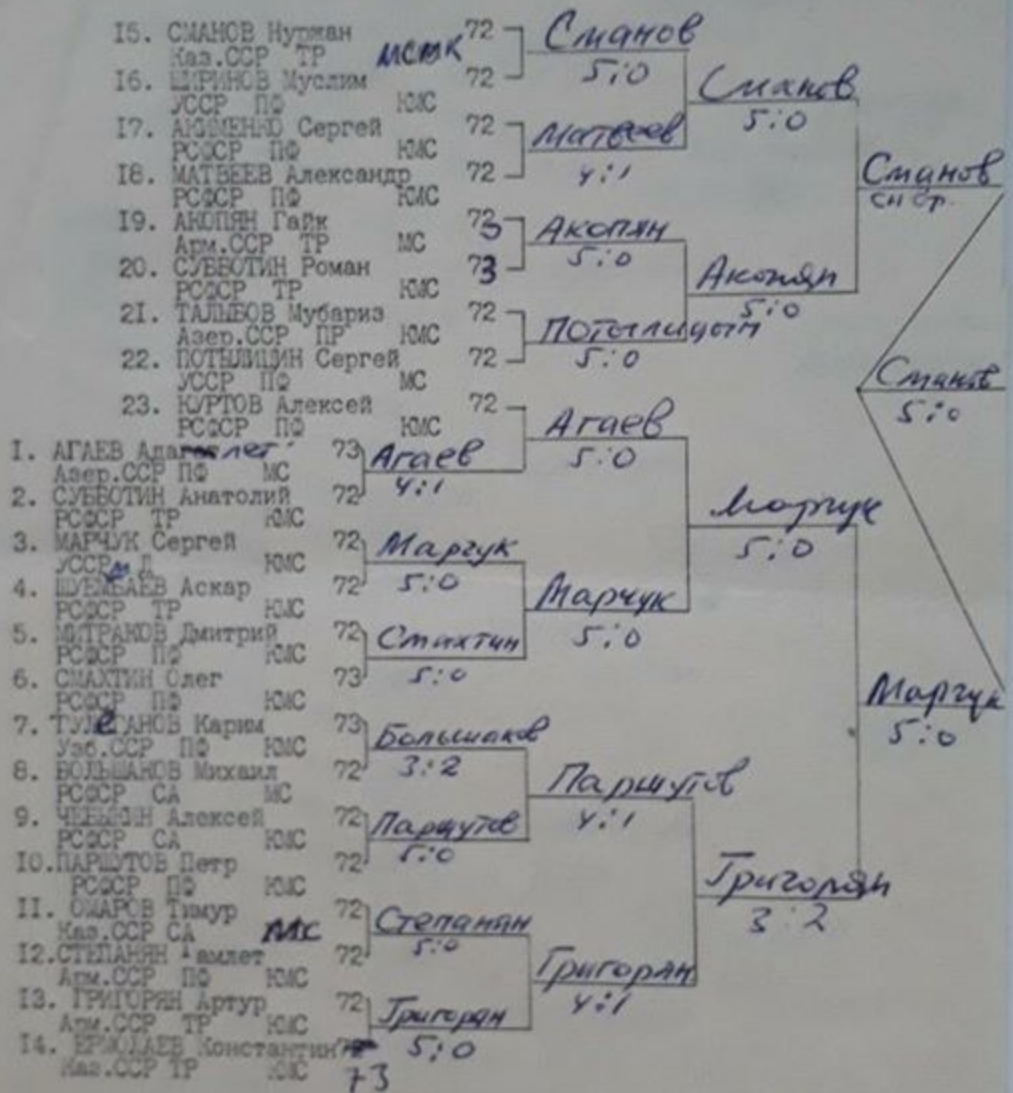 15. СМАНОВ Нуржан 72
Каз.ССР ТР мсмк
16. ШИРИНОВ Муслим 72
УССР ПФ КМС
17. АКИМЕНКО Сергей 72
РСФСР ПФ КМС
18. МАТВЕЕВ Александр 72
РСФСР ПФ КМС
19. АКОПЯН Гайк 73
Арм.ССР ТР МС
20. СУББОТИН Роман 73
РСФСР ТР КМС
21. ТАЛЫБОВ Мубариз 72
Азер.ССР ПР КМС
22. ПОТЫЛИЦИН Сергей 72
УССР ПФ МС
23. КУРТОВ Алексей 72
РСФСР ПФ КМС
1. АГАЕВ 73
Азер.ССР ПФ МС
2. СУББОТИН Анатолий 72
РСФСР ТР КМС
3. МАРЧУК Сергей 72
УССР Д КМС
4. Аскар 72
РСФСР ТР КМС
5. МИТРАКОВ Дмитрий 72
РСФСР ПФ КМС
6. СМАХТИН Олег 73
РСФСР ПФ КМС
7. ТУЛЕГАНОВ Карим 73
Узб.ССР ПФ КМС
8. БОЛЬШАКОВ Михаил 72
РСФСР СА МС
9. Алексей 72
РСФСР СА КМС
10.ПАРШУТОВ Петр 72
РСФСР ПФ КМС
11. ОМАРОВ Тимур 72
Каз.ССР СА МС
12.СТЕПАНЯН Гамлет 72
Арм.ССР ПФ КМС
13. ГРИГОРЯН Артур 72
Арм.ССР ТР КМС
14. ЕРМОЛАЕВ Константин
Каз.ССР ТР КМС 73
Сманов
5:0
Матвеев
4:1
Акопян
5:0
Потылицын
5:0
Агаев
4:1
Марчук
5:0
Смахтин
5:0
Большаков
3:2
Паршутов
5:0
Степанян
5:0
Григорян
5:0
Сманов
5:0
Акопян
5:0
Агаев
5:0
Марчук
5:0
Паршутов
4:1
Григорян
4:1
Сманов
Марчук
5:0
Григорян
3:2
Сманов
5:0
Марчук
5:0